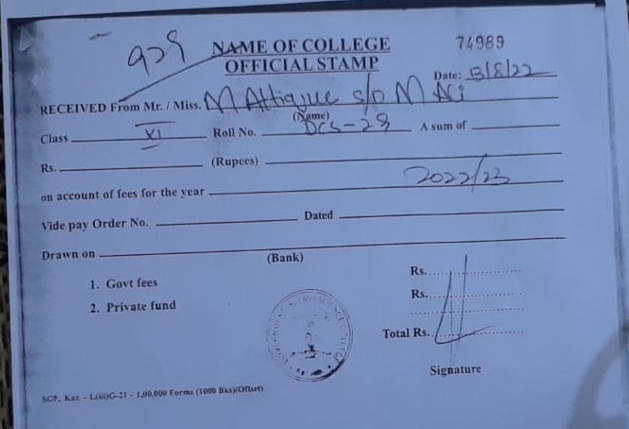 929
NAME OF COLLEGE 74989
OFFICIAL STAMP
Date: 13/8/22
RECEIVED From Mr. / Miss. M Attique s/o M Ali
(Name)
Class XI Roll No. DCS-29 A sum of
Rs. (Rupees)
on account of fees for the year 2022/23
Vide pay Order No. Dated
Drawn on
(Bank)
1. Govt fees Rs.
2. Private fund Rs.
Total Rs.
Signature
SGP., Kar. - L(iii)G-21 - 1,00,000 Forms (1000 Bks)(Offset)